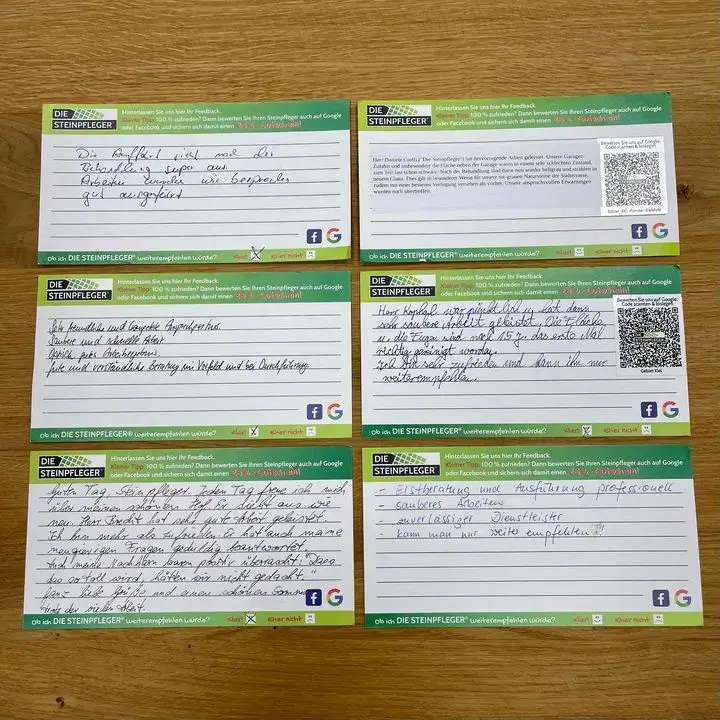 DIE
STEINPFLEGER
Hinterlassen Sie uns hier Ihr Feedback.
Kleiner Tipp: 100 % zufrieden? Dann bewerten Sie Ihren Steinpfleger auch auf Google
oder Facebook und sichern sich damit einen 25 €-Gutschein!
Die Auffahrt sieht nach der
Behandlung super aus
Arbeiten wurden wie besprochen
gut ausgeführt
Ob ich DIE STEINPFLEGER® weiterempfehlen würde? Klar! Eher nicht
DIE
STEINPFLEGER
Hinterlassen Sie uns hier Ihr Feedback.
Kleiner Tipp: 100 % zufrieden? Dann bewerten Sie Ihren Steinpfleger auch auf Google
oder Facebook und sichern sich damit einen 25 €-Gutschein!
Bewerten Sie uns auf Google:
Code scannen & loslegen!
Herr Daniele Cioffi ("Die Steinpfleger") hat hervorragende Arbeit geleistet. Unsere Garagen-
Zufahrt und insbesondere die Fläche neben der Garage waren in einem sehr schlechten Zustand,
zum Teil fast schon schwarz. Nach der Behandlung sind diese nun wieder hellgrau und strahlen in
neuem Glanz. Dies gilt in besonderer Weise für unsere rot-grauen Natursteine der Südterrasse,
zudem mit einer besseren Verfugung versehen als vorher. Unsere anspruchsvollen Erwartungen
wurden noch übertroffen.
Gebiet -DO -Münster-Bielefeld
Ob ich DIE STEINPFLEGER® weiterempfehlen würde? Klar! Eher nicht
DIE
STEINPFLEGER
Hinterlassen Sie uns hier Ihr Feedback.
Kleiner Tipp: 100 % zufrieden? Dann bewerten Sie Ihren Steinpfleger auch auf Google
oder Facebook und sichern sich damit einen 25 €-Gutschein!
Sehr freundliche und kompetente Ansprechpartner.
Saubere und schnelle Arbeit
Optisch gutes Arbeitsergebnis.
Gute und verständliche Beratung im Vorfeld und bei Durchführung.
Ob ich DIE STEINPFLEGER® weiterempfehlen würde? Klar! Eher nicht
DIE
STEINPFLEGER
Hinterlassen Sie uns hier Ihr Feedback.
Kleiner Tipp: 100 % zufrieden? Dann bewerten Sie Ihren Steinpfleger auch auf Google
oder Facebook und sichern sich damit einen 25 €-Gutschein!
Bewerten Sie uns auf Google:
Code scannen & loslegen!
Herr war pünktlich u. hat dann
sehr saubere Arbeit geleistet. Die Fläche
u. die Fugen sind nach 15 J. das erste Mal
richtig gereinigt worden.
Ich bin sehr zufrieden und kann ihn nur
weiterempfehlen.
Gebiet Kiel
Ob ich DIE STEINPFLEGER® weiterempfehlen würde? Klar! Eher nicht
DIE
STEINPFLEGER
Hinterlassen Sie uns hier Ihr Feedback.
Kleiner Tipp: 100 % zufrieden? Dann bewerten Sie Ihren Steinpfleger auch auf Google
oder Facebook und sichern sich damit einen 25 €-Gutschein!
Guten Tag, Steinpfleger. Jeden Tag freue ich mich
über meinen schönen Hof. Er sieht aus wie
neu. Herr Brecht hat sehr gute Arbeit geleistet.
Ich bin mehr als zufrieden. Er hat auch meine
neugierigen Fragen geduldig beantwortet.
Auch meine Nachbarn waren positiv überrascht: "Dass
das so toll wird, hätten wir nicht gedacht."
Ganz liebe Grüße und einen schönen Sommer
trotz der vielen Arbeit.
Ob ich DIE STEINPFLEGER® weiterempfehlen würde? Klar! Eher nicht
DIE
STEINPFLEGER
Hinterlassen Sie uns hier Ihr Feedback.
Kleiner Tipp: 100 % zufrieden? Dann bewerten Sie Ihren Steinpfleger auch auf Google
oder Facebook und sichern sich damit einen 25 €-Gutschein!
- Erstberatung und Ausführung professionell
- sauberes Arbeiten
- zuverlässiger Dienstleister
- kann man nur weiter empfehlen!!
Ob ich DIE STEINPFLEGER® weiterempfehlen würde? Klar! Eher nicht